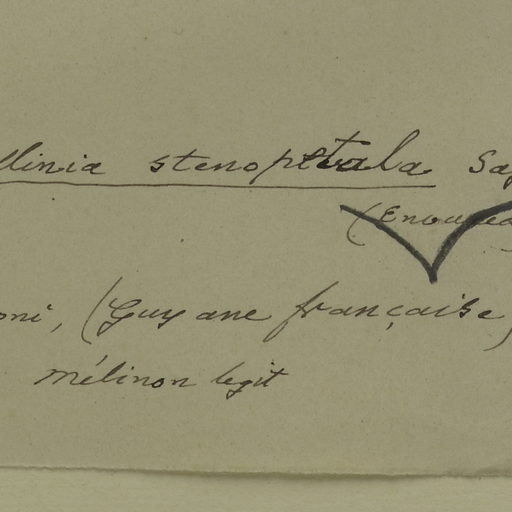 llinia stenopetala Sag
(Enoured
oni, (Guyane française)
Mélinon legit